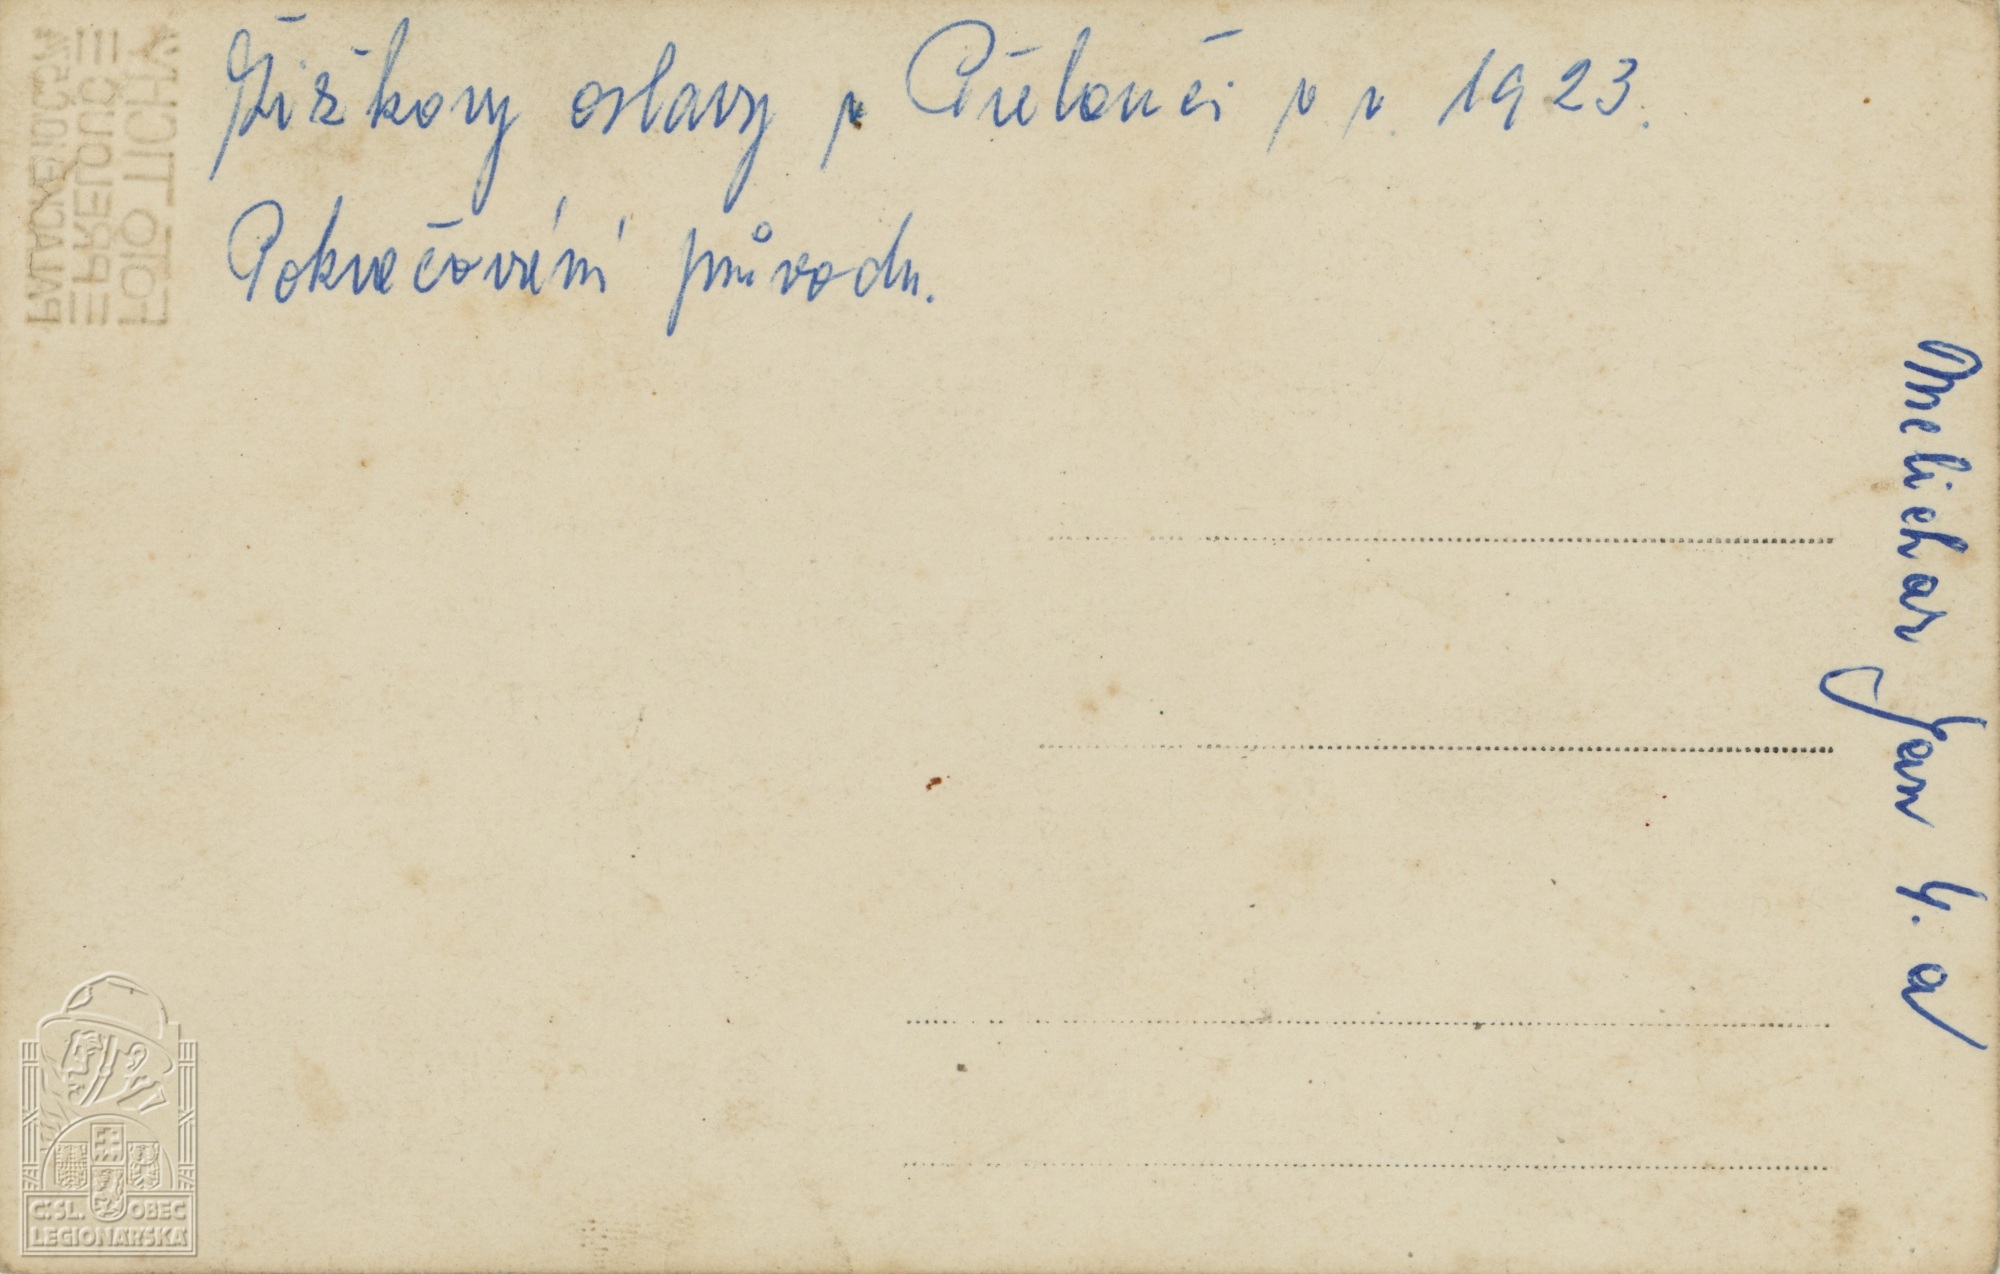 Žižkovy oslavy v Přelouči v r. 1923.
Pokračování průvodu.
Melichar Jan 4. a
FOTO TICHÝ
PŘELOUČ
PALACKÉHO
Č:SL. OBEC
LEGIONÁŘSKÁ